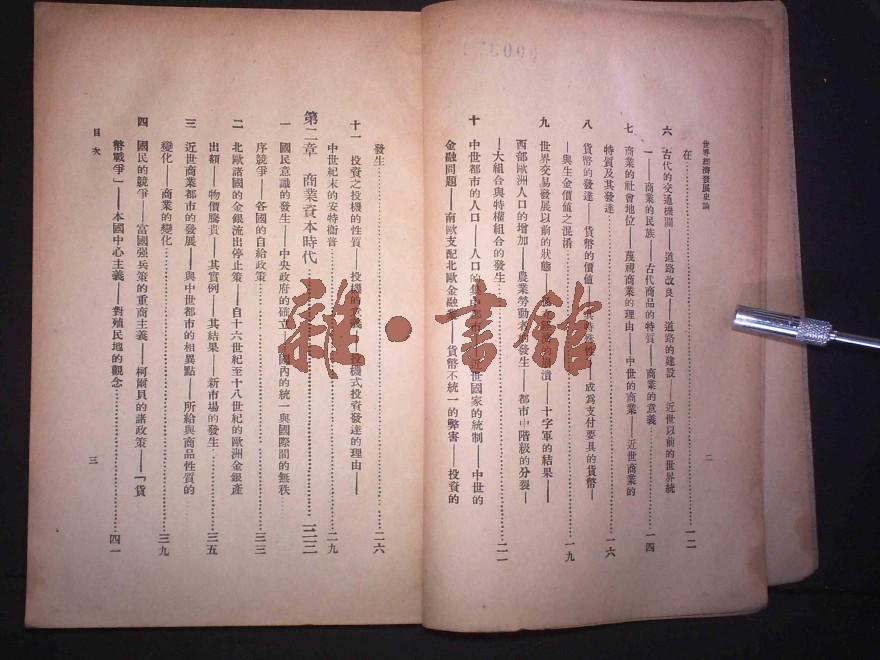 世界經濟發展史論
二
在……一二
六 古代的交通機關——道路改良——道路的建設——近世以前的世界統
一——商業的民族——古代商品的特質——商業的意義……一四
七 商業的社會地位——蔑視商業的理由——中世的商業——近世商業的
特質及其發達……一六
八 貨幣的發達——貨幣的價值——其特殊性——成爲支付要具的貨幣——
與生金價值之混淆……一九
九 世界交易發展以前的狀態——崩潰——十字軍的結果——
西部歐洲人口的增加——農業勞動者的發生——都市中階級的分裂——
大組合與特權組合的發生……二一
十 中世都市的人口——人口的集中都市——近世國家的統制——中世的
金融問題——南歐支配北歐金融業——貨幣不統一的弊害——投資的
發生……二六
十一 投資之投機的性質——投機的意義——投機式投資發達的理由——
中世紀末的安特衞普……二九
第二章 商業資本時代……三三
一 國民意識的發生——中央政府的確立——國內的統一與國際間的無秩
序競爭——各國的自給政策……三三
二 北歐諸國的金銀流出停止策——自十六世紀至十八世紀的歐洲金銀產
出額——物價騰貴——其實例——其結果——新市場的發生……三五
三 近世商業都市的發展——與中世都市的相異點——所給與商品性質的
變化——商業的變化……三九
四 國民的競爭——富國强兵策的重商主義——柯爾貝的諸政策——「貨
幣戰爭」——本國中心主義——對殖民地的觀念……四一
目次
三
雜·書館